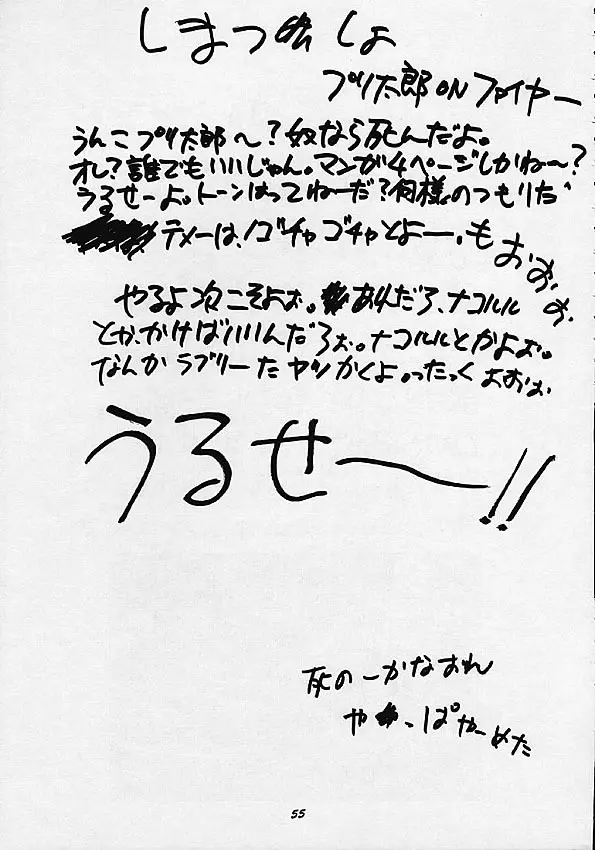 しまつ しょ
プリ太郎 ON ファイヤー
うんこプリ太郎〜?奴なら死んだよ。
オレ?誰でもいいじゃん。マンガ4ページしかね〜?
うるせーよ。トーンはってねーだ?何様のつもりだ
テメーは、ゴチャゴチャとよー、も おおおお、
やるよ次こそよお。あれだろ、ナコルル
とか、かけばいいんだろお。ナコルルとかよお。
なんかラブリーたヤツかくよ。ったっくよおおお
うるせ〜!!
死のーかなおれ
や っぱやーめた
55